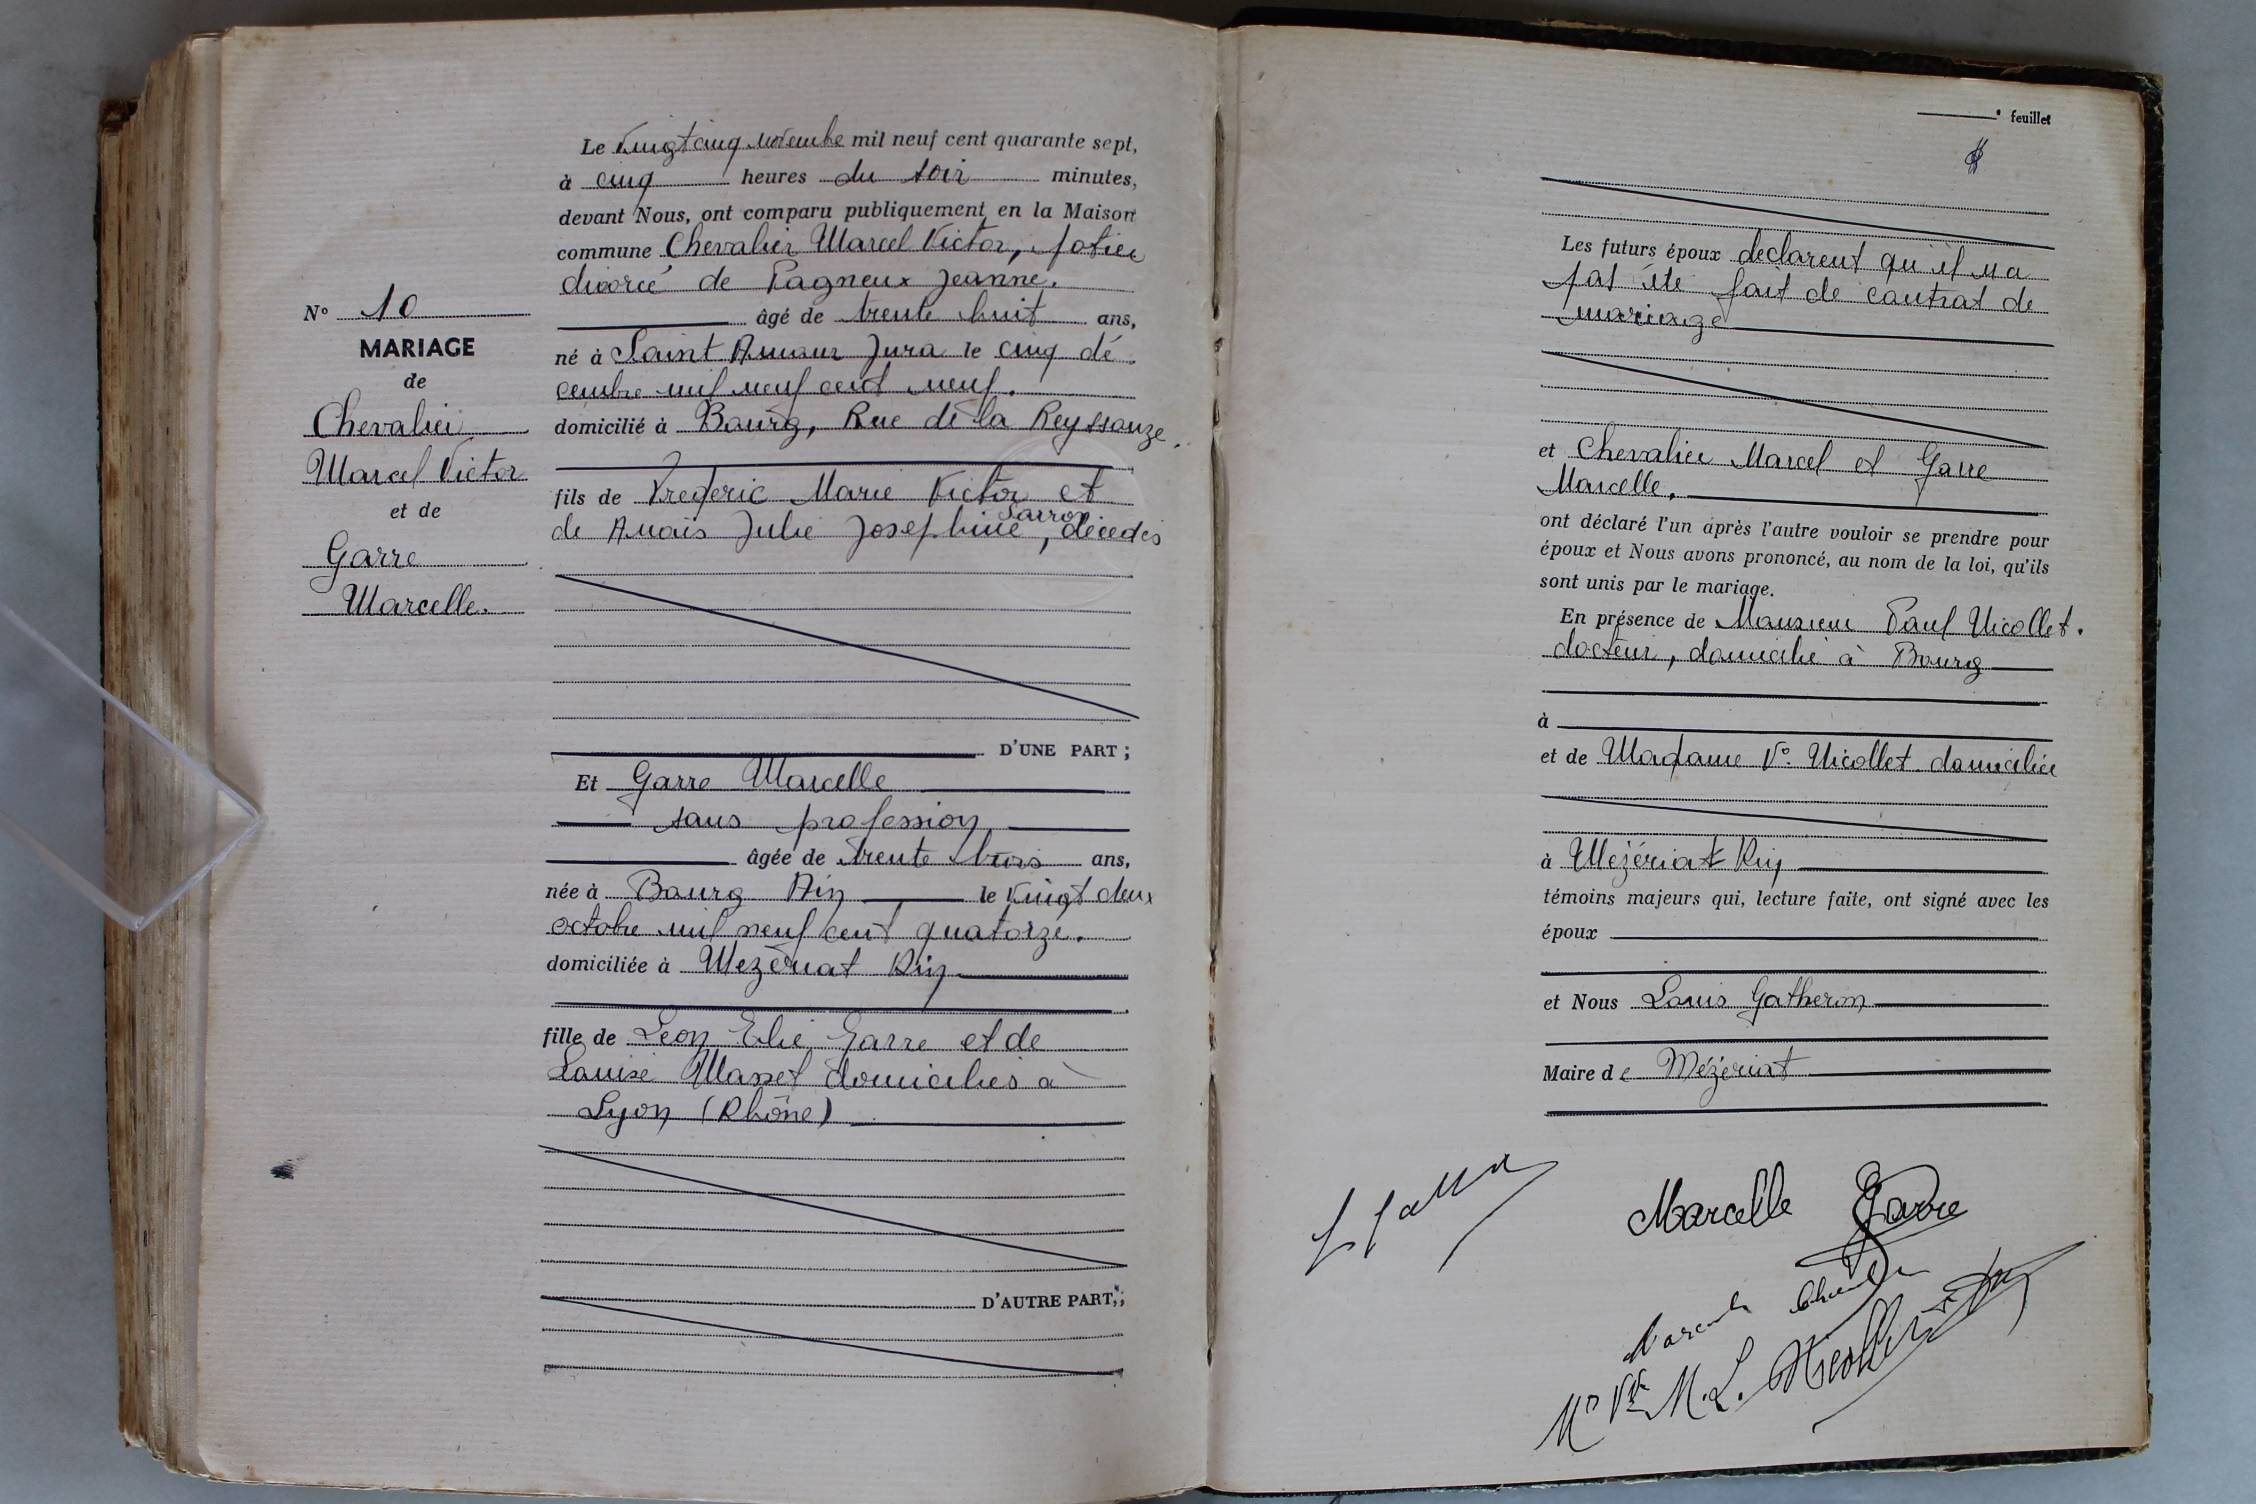 N° 10
MARIAGE
de
Chevalier
Marcel Victor
et de
Garre
Marcelle.
Le vingt cinq novembre mil neuf cent quarante sept,
à cinq heures du soir minutes,
devant Nous, ont comparu publiquement en la Maison
commune Chevalier Marcel Victor, potier
divorcé de Pagneux Jeanne.
âgé de trente huit ans,
né à Saint Amour Jura le cinq dé
cembre mil neuf cent neuf.
domicilié à Bourg, Rue de la Reyssouze.
fils de Frederic Marie Victor et
Sarron
de Anaïs Julie Josephine, décédés
D'UNE PART ;
Et Garre Marcelle
sans profession
âgée de trente trois ans,
née à Bourg Ain le vingt deux
octobre mil neuf cent quatorze.
domiciliée à Mezériat Ain
fille de Léon Elie Garre et de
Louise Masset domiciliés à
Lyon (Rhône)
D'AUTRE PART,;
feuillet
Les futurs époux déclarent qu'il n'a
pas été fait de contrat de
mariage
et Chevalier Marcel et Garre
Marcelle.
ont déclaré l'un après l'autre vouloir se prendre pour
époux et Nous avons prononcé, au nom de la loi, qu'ils
sont unis par le mariage.
En présence de Monsieur Paul Nicollet.
docteur, domicilié à Bourg
à
et de Madame Vᵉ Nicollet domiciliée
à Mezériat Ain
témoins majeurs qui, lecture faite, ont signé avec les
époux
et Nous Louis Gatheron
Maire de Mézériat
Marcelle Garre
M. L. Nicollet